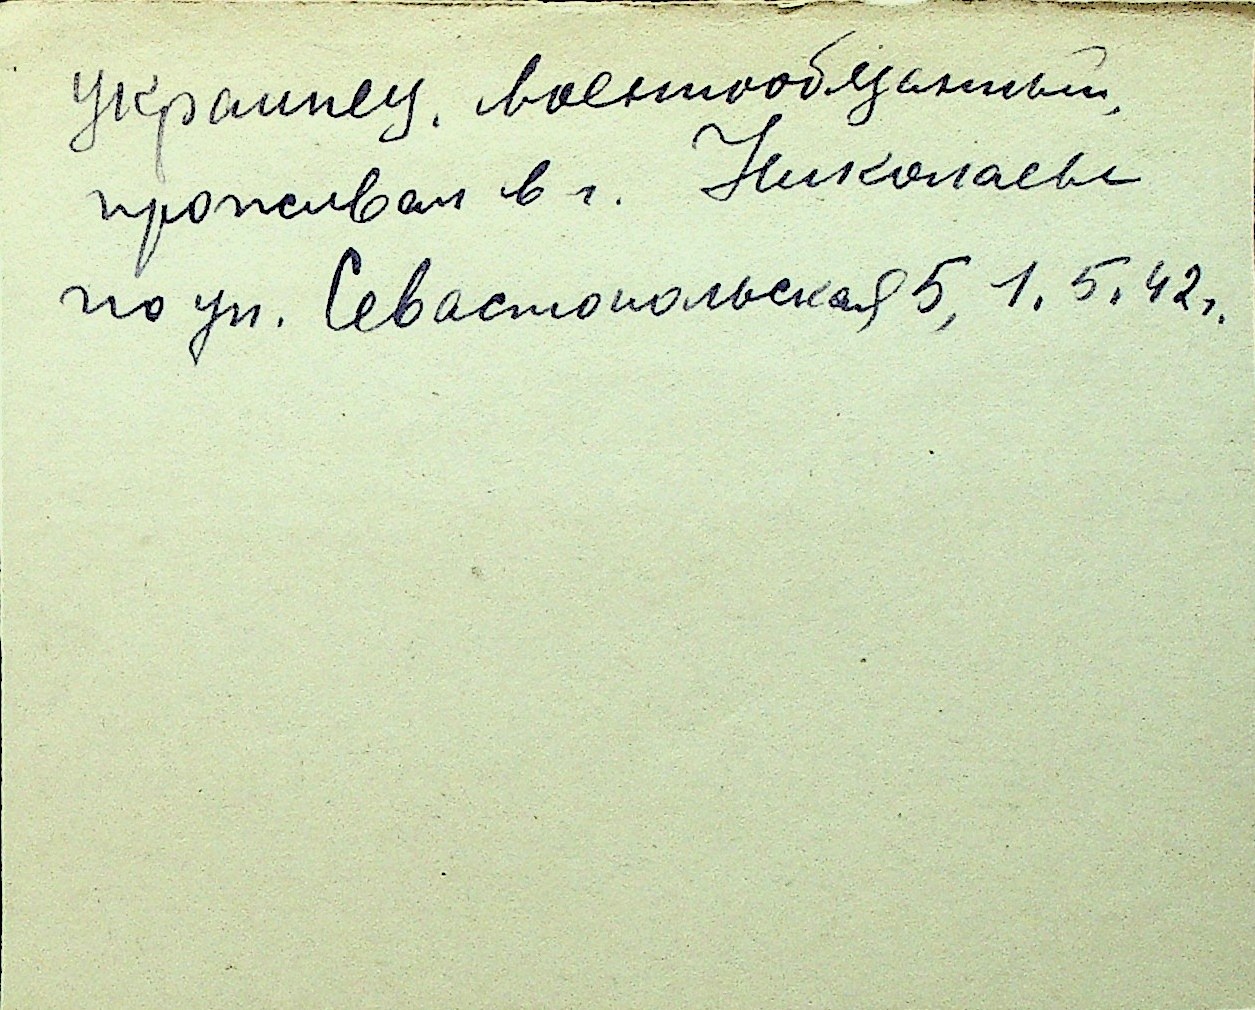 украинец, военнообязанный,
проживал в г. Николаеве
по ул. Севастопольская 5, 1.5.42г.